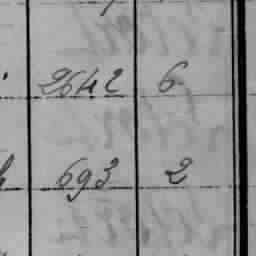 2642 6
693 2